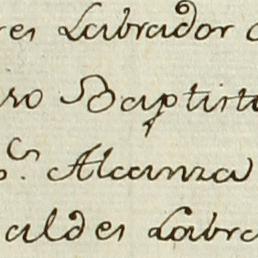 res Labrador
so Baptist
o.s Alcanza
aldes Labra